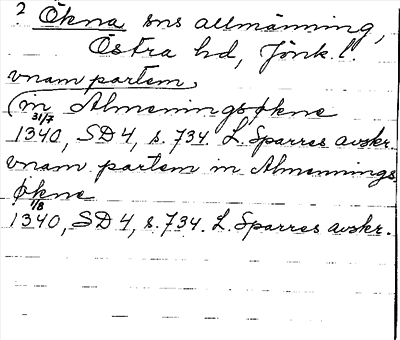 ? Ökna sns allmänning,
Östra hd, Jönk. l.
vnam partem
(in Almenningsøkne
31/7
1340, SD 4, s. 734. L. Sparres avskr.
vnam partem in Almennings
økne
1/8
1340, SD 4, s. 734. L. Sparres avskr.